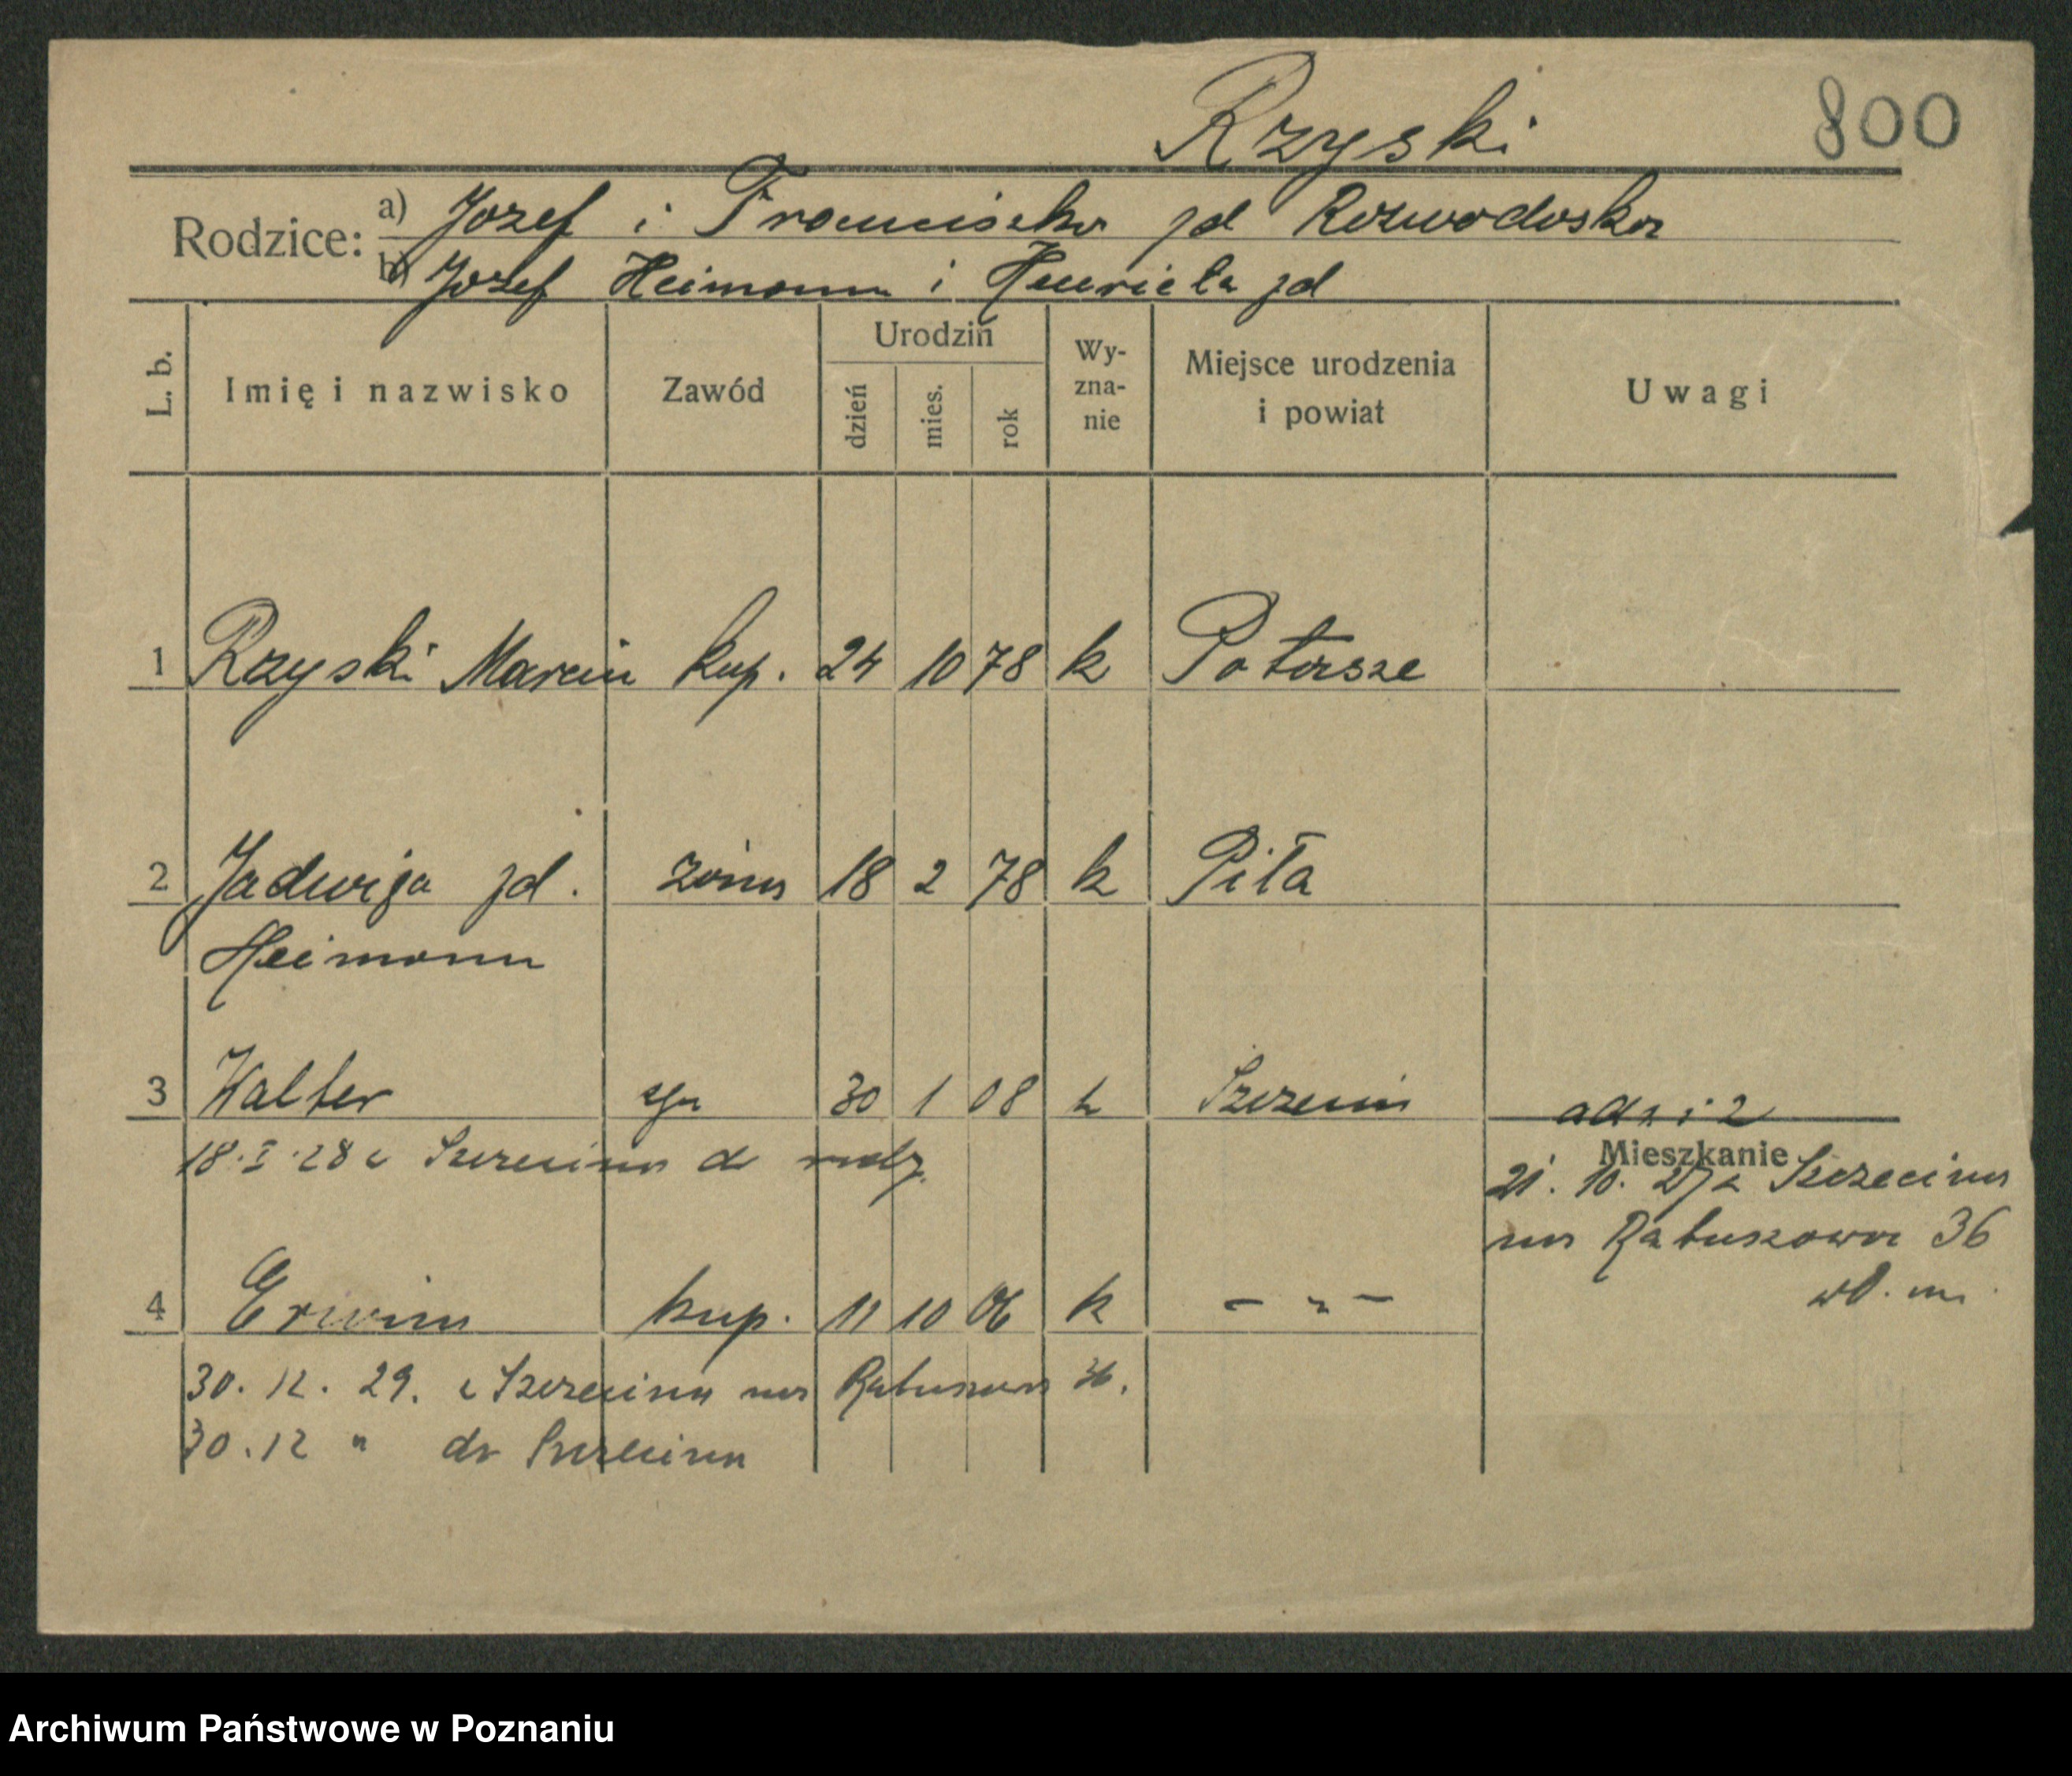 Rzyski
800
Rodzice: a) Jozef i Franciszka zd Rozwadoska
b) Jozef Heimann i Henrieta zd
L. b. Imię i nazwisko Zawód Urodziń dzień mies. rok Wy-zna-nie Miejsce urodzenia i powiat Uwagi
1 Rzyski Marcin kup. 24 10 78 k Potarsze
2 Jadwiga zd. żona 18 2 78 k Piła
Heimann
3 Walter syn 30 1 08 k Szczecin
ad 1 i 2
Mieszkanie
18. I. 28 z Szczecina do rodz.
21. 10. 27 z Szczecina
na Ratuszowa 36
wł. m.
4 Erwin kup. 11 10 06 k – " –
30. 12. 29. z Szczecina na Ratuszowa 36.
30. 12 " do Szczecina
Archiwum Państwowe w Poznaniu